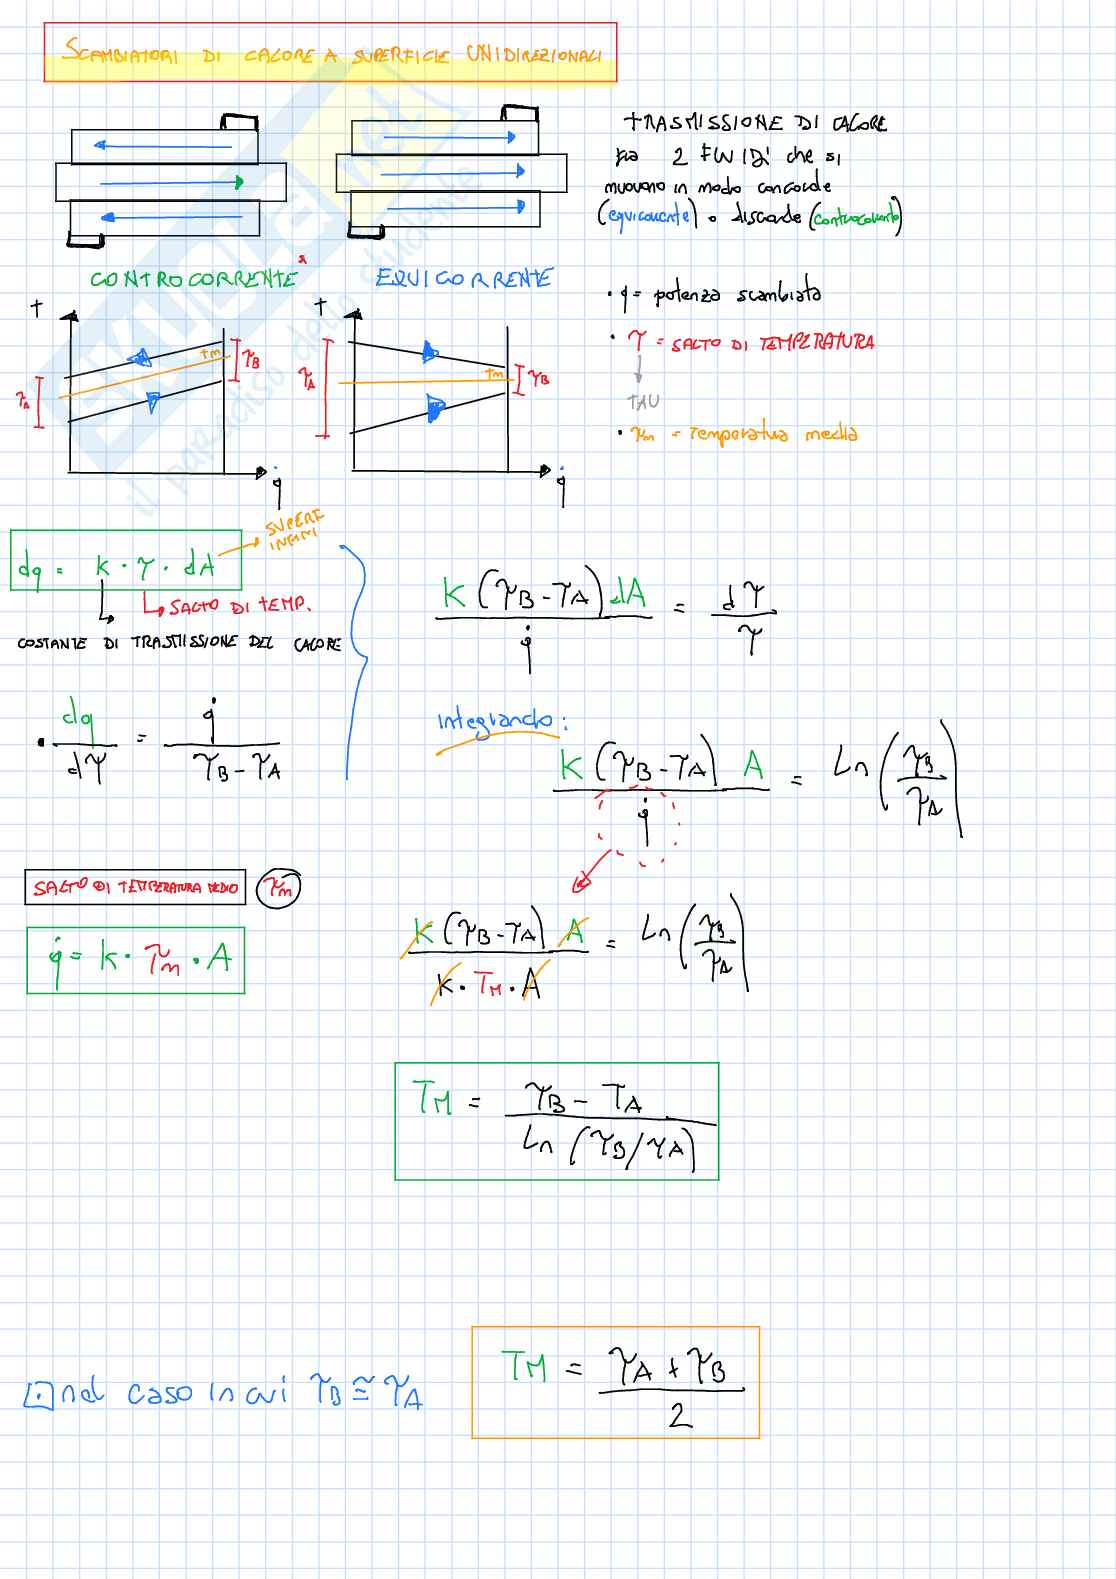 SCAMBIATORI DI CALORE A SUPERFICIE UNIDIREZIONALI
TRASMISSIONE DI CALORE
fra 2 FLUIDI che si
muovono in modo concorde
(equicorrente) o discorde (controcorrente)
CONTROCORRENTE *
EQUICORRENTE
t
τA
τB
tm
q̇
t
τA
τB
tm
q̇
• q̇ = potenza scambiata
• τ = SALTO DI TEMPERATURA
TAU
• τm = Temperatura media
dq = k · τ · dA
SUPERF
INFINI
SALTO DI TEMP.
COSTANTE DI TRASMISSIONE DEL CALORE
• dq/dτ = q̇/(τB - τA)
K (τB - τA) dA / q̇ = dτ/τ
integrando:
K (τB - τA) A / q̇ = Ln (τB/τA)
SALTO DI TEMPERATURA MEDIO τm
q̇ = k · τm · A
K (τB - τA) A / K · TM · A = Ln (τB/τA)
TM = τB - TA / Ln (τB/τA)
⊡ nel caso in cui τB ≅ τA
TM = τA + τB / 2
SKUOLA.net
il paradiso dello studente